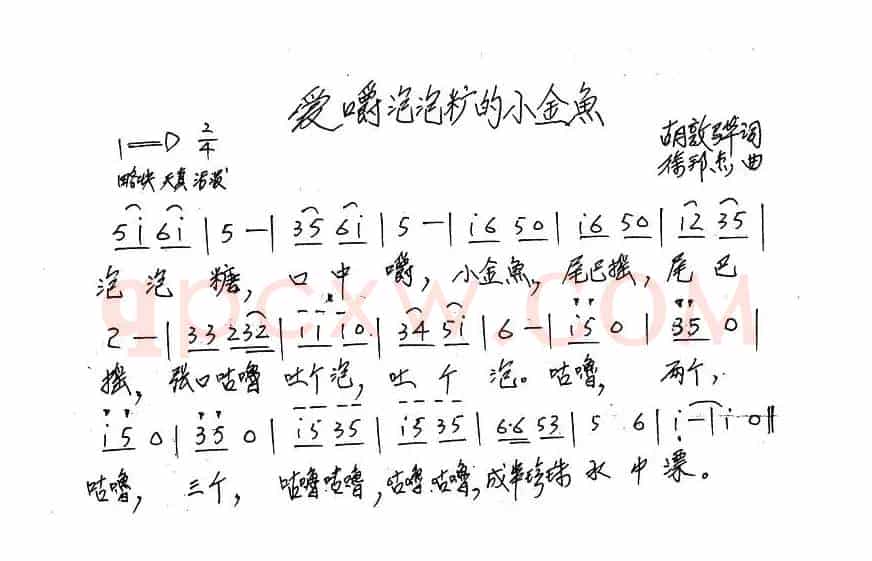 爱嚼泡泡糖的小金魚
1=D 2/4
胡敦骅词
略快 天真 活泼
徐邦杰曲
5i 6i | 5 — | 35 6i | 5 — | i6 50 | i6 50 | i2 35 |
泡泡糖，口中嚼，小金魚，尾巴摇，尾巴
2 — | 33 232 | ii i0 | 34 5i | 6 — | i5 0 | 35 0 |
摇，张口咕噜吐个泡，吐个泡。咕噜，两个，
i5 0 | 35 0 | i5 35 | i5 35 | 6·6 53 | 5 6 | i — | i 0 ||
咕噜，三个，咕噜咕噜，咕噜咕噜，成串珍珠水中漂。
qpcxw.com